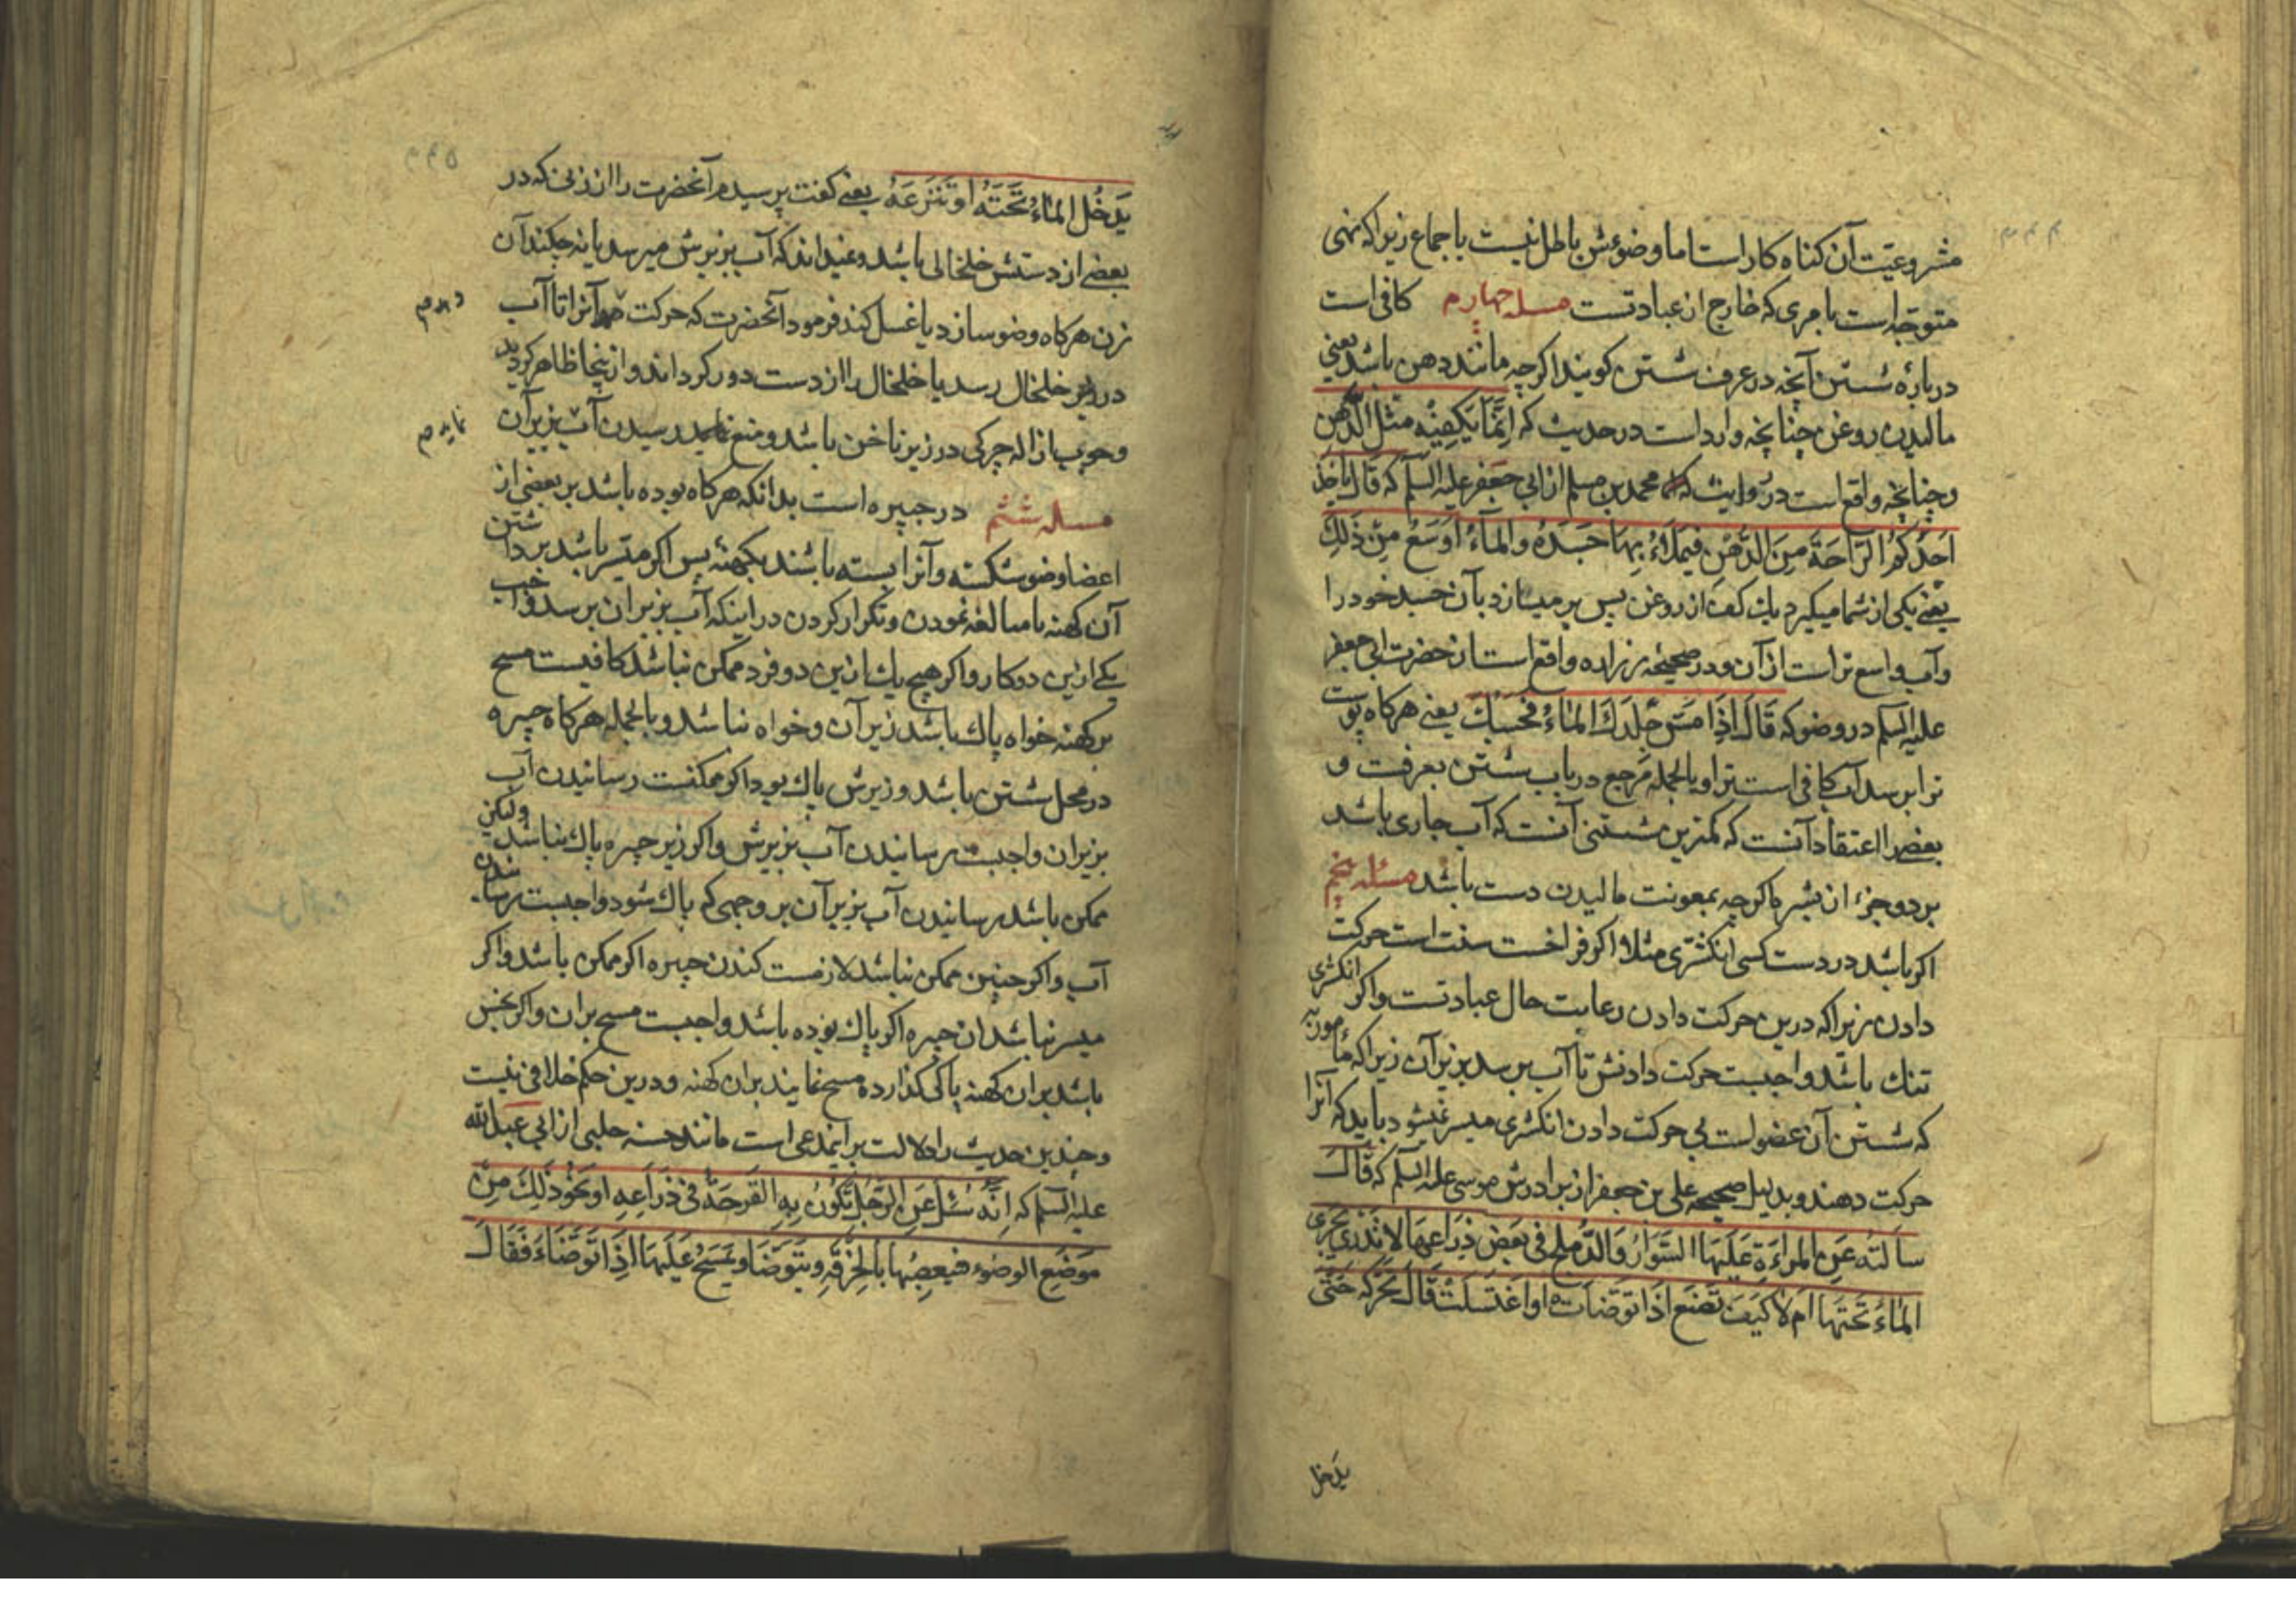 مشروعیت آن کناه کار است اما وضوءش باطل نیست باجماع زیرا که نهی
متوجه است بامری که خارج از عبادتست مسله چهارم کافی است
درباره شستن آنچه در عرف شستن کویند اکرچه مانند دهن باشد یعنی
مالیدن روغن چنانچه وارد است در حدیث که اِنَّمَا یَکفِیْهِ مثل الدُّهن
وچنانچه واقع است در روایت محمد بن مسلم از ابی جعفر علیه السلم که قَالَ یَاخُذُ
اَحَدُکُمُ الرَّاحَةَ مِنَ الدُّهْنِ فَیَمْلَاءُ بِهَا جَسَدَهُ وَالمَآءُ اَوْسَعُ مِنْ ذَلِکَ
یعنی یکی از شما میکیرد یك کف از روغن پس پر میسازد بآن جسد خود را
وآب واسع تر است از آن ودر صحیحه زراره واقع است از حضرت ابی جعفر
علیه السلم در وضو که قَالَ اِذَا مَسَّ جِلْدَكَ المَاءُ فَحَسْبُكَ یعنی هرکاه پوست
ترا برسد آب کافی است ترا وبالجمله مرجع در باب شستن بعرفت و
بعضی را اعتقاد آنست که کمترین شستنی آنست که آب جاری باشد
بر دو جزء از بشره اکرچه بمعونت مالیدن دست باشد مسئله پنجم
اکر باشد در دست کسی انکشتری مثلا اکر فراخست سنت است حرکت
دادن زیرا که درین حرکت دادن رعایت حال عبادتست واکر انکشتری
تنك باشد واجبست حرکت دادنش تا آب برسد بزیر آن زیرا که مامور به
که شستن آن عضو است بی حرکت دادن انکشتری میسر نمیشود باید که آنرا
حرکت دهند وبدلیل صحیحه علی بن جعفر از برادرش موسی علیه السلم که قَالَ
سَاَلتُهُ عَنِ المراءَةِ عَلَیهَا السّوَارُ وَالدُّملُج فی بَعْضِ ذِرَاعِهَا لا تَدْرِی یَجْرِی
المَاءُ تَحْتَهَا اَم لا کَیْفَ تَصْنَعُ اِذَا تَوَضَّاَت اَو اغْتَسَلَتْ قَالَ تُحَرِّکُهُ حَتّی
یدخل
یَدخُلَ المَاءُ تَحْتَهُ اَو تَنْزَعَهُ یعنی کفت پرسیدم آنحضرت را از زنی که در
بعضی از دستش خلخالی باشد ونمیداند که آب بزیرش میرسد یا نه چکند آن
زن هرکاه وضو سازد یا غسل کند فرمود آنحضرت که حرکت دهد آنرا تا آب
در زیر خلخال رسد یا خلخال را از دست دور کرداند واز ینجا ظاهر کردید
وجوب ازاله چرکی در زیر ناخن باشد ومنع نماید رسیدن آب بزیر آن
مسله ششم در جبیره است بدانکه هرکاه بوده باشد بر بعضی از
اعضا وضو شکسته وآنرا بسته باشند بکهنه پس اکر میسر باشد برداشتن
آن کهنه یا مبالغه نمودن وتکرار کردن در اینکه آب بزیر آن برسد واجب
یکی ازین دو کار واکر هیچ یك ازین دو فرد ممکن نباشد کافیست مسح
بر کهنه خواه پاك باشد زیر آن وخواه نباشد وبالجمله هرکاه جبیره
در محل شستن باشد وزیرش پاك بود اکر ممکنست رسانیدن آب
بزیر آن واجبست رسانیدن آب بزیرش واکر زیر جبیره پاك نباشد ولیکن
ممکن باشد رسانیدن آب بزیر آن بر وجهی که پاك شود واجبست رسانیدن
آب واکر چنین ممکن نباشد لازمست کندن جبیره اکر ممکن باشد واکر
میسر نباشد آن جبیره اکر پاك بوده باشد واجبست مسح بر آن واکر نجس
باشد بر آن کهنه پاکی کذارده مسح نمایند بر آن کهنه ودرین حکم خلافی نیست
وچندین حدیث را دلالت بر اینمدعی است مانند حسنه حلبی از ابی عبدالله
علیه السلم که اِنَّهُ سُئِلَ عَنِ الرَّجُلِ تَکُونُ بِهِ القَرحَةُ فی ذِرَاعِهِ اَو نَحْوِ ذَلِكَ مِنْ
مَوضِعِ الوضوء فیَعصِبُهَا بِالخِرْقَةِ وَیَتَوَضَّا وَیَمسَحُ عَلَیهَا اِذَا تَوَضَّاءَ فَقَالَ
دهد م
نماید م